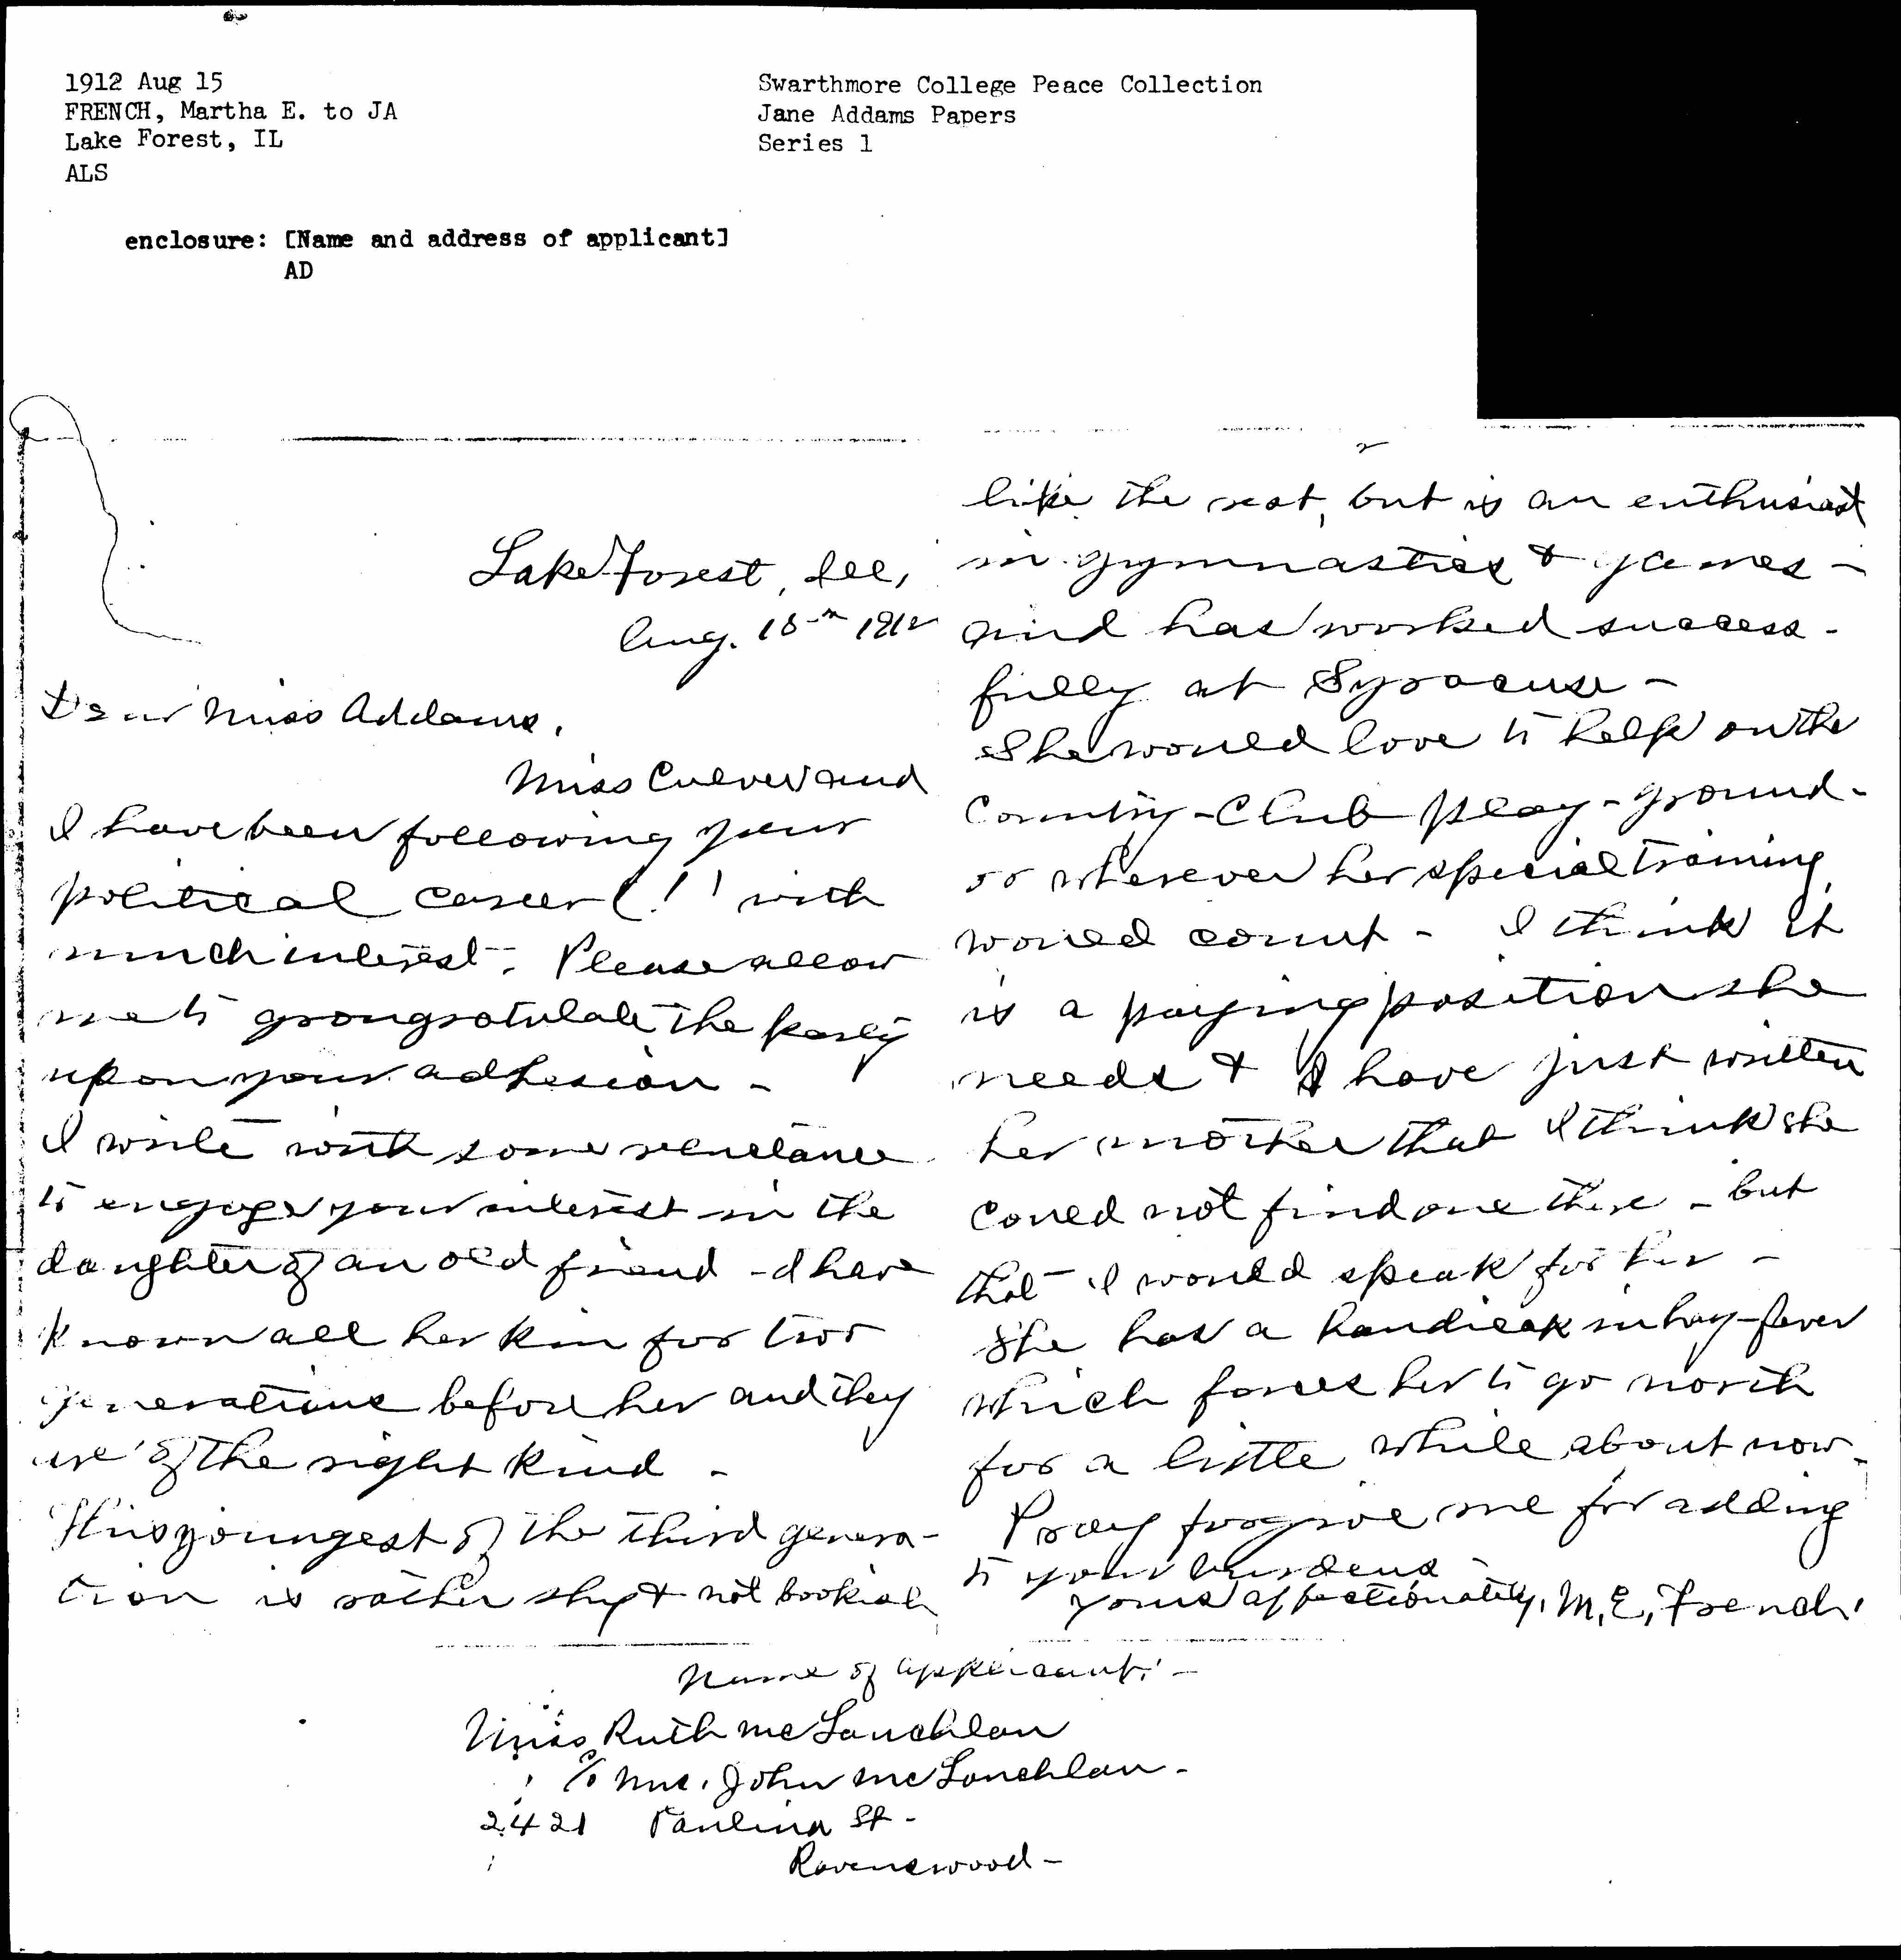 1912 Aug 15
FRENCH, Martha E. to JA
Lake Forest, IL
ALS
Swarthmore College Peace Collection
Jane Addams Papers
Series 1
enclosure: [Name and address of applicant]
AD
Lake Forest, Ill,
Aug. 15th 1912
Dear Miss Addams,
Miss Culver and
I have been following your
political career (!) with
much interest. Please allow
me to grongratulate the party
upon your adhesion -
I write with some reluctance
to engage your interest in the
daughter of an old friend - I have
known all her kin for two
generations before her and they
are of the right kind -
This youngest of the third genera-
tion is rather shy & not bookish
2
like the rest, but is an enthusiast
in gymnastics & games -
and has worked success-
fully at Syracuse -
She would love to help on the
Country-Club play-ground -
or wherever her special training
would count - I think it
is a paying position she
needs & I have just written
her mother that I think she
could not find one there - but
that I would speak for her -
She has a handicap in hay-fever
which forces her to go north
for a little while about now -
Pray forgive me for adding
to your burdens -
yours affectionately, M. E. French.
Name of applicant: -
Miss Ruth McLauchlan
c/o Mrs. John McLauchlan -
2421 Paulina St -
Ravenswood -